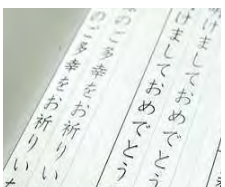 けましておめでとう
けましておめでとう
のご多幸をお祈りい
のご多幸をお祈りい